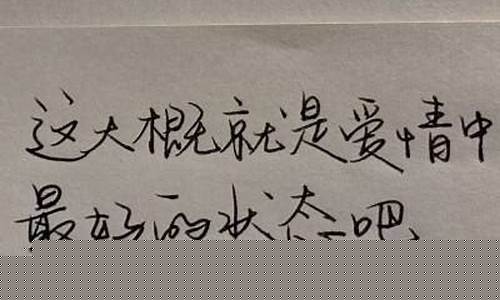 这大概就是爱情中
最好的状态吧